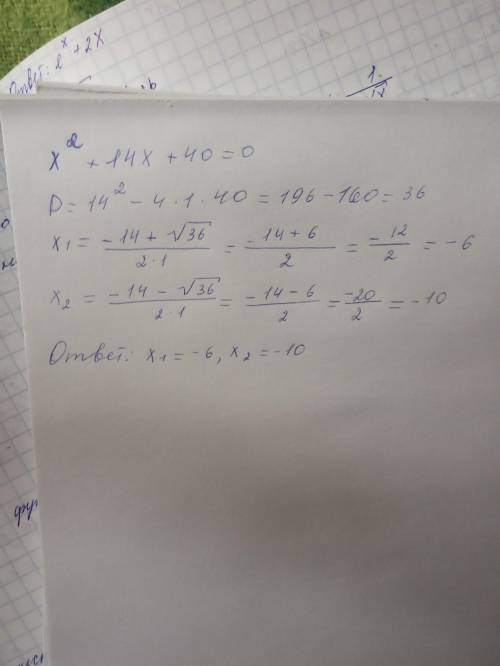 Ответ: e^x + 2x
x² + 14x + 40 = 0
D = 14² - 4 · 1 · 40 = 196 - 160 = 36
x₁ = (-14 + √36)/(2·1) = (-14 + 6)/2 = -12/2 = -6
x₂ = (-14 - √36)/(2·1) = (-14 - 6)/2 = -20/2 = -10
Ответ: x₁ = -6, x₂ = -10